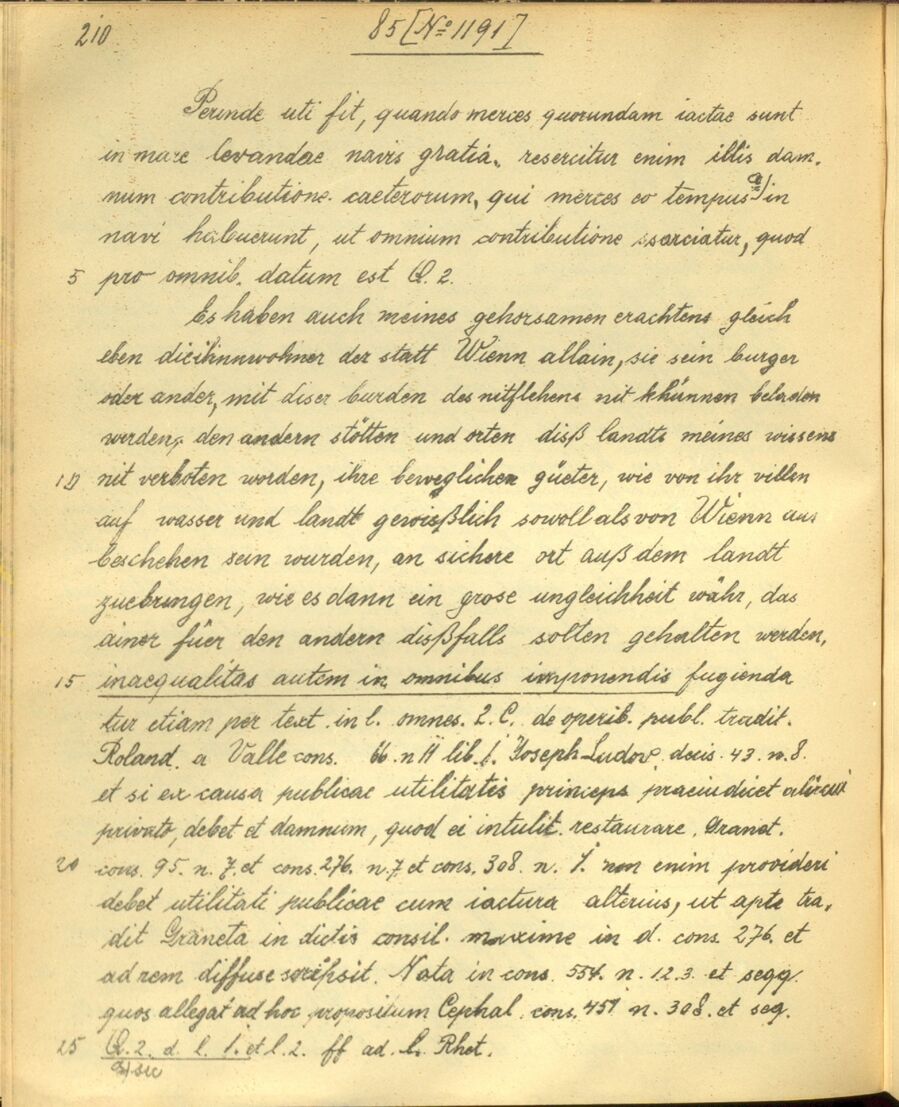 210
85 [No 1191]
Perinde uti fit, quando merces quorundam iactae sunt
in mare levandae navis gratia, resercitur enim illis dam-
num contributione caeterorum, qui merces eo tempus a) in
navi habuerunt, ut omnium contributione sarciatur, quod
5 pro omnib. datum est Q. 2.
Es haben auch meines gehorsamen erachtens gleich
eben die innwohner der statt Wienn allain, sie sein burger
oder ander, mit diser burden des nitflehens nit khünnen beladen
werden, den andern stötten und orten diß landts meines wissens
10 nit verboten worden, ihre beweglichen güeter, wie von ihr villen
auf wasser und landt gewießlich sowoll als von Wienn aus
beschehen sein wurden, an sichere ort auß dem landt
zuebringen, wie es dann ein grose ungleichheit währ, das
ainer füer den andern dißfalls solten gehalten werden,
15 inaequalitas autem in omnibus imponendis fugienda
tur etiam per text. in l. omnes. 2. C. de operib. publ. tradit.
Roland. a Valle cons. 66. n 11 lib. 1. Joseph Ludov. decis. 43. n. 8.
et si ex causa publicae utilitatis princeps praeiudicet alicui
privato, debet et damnum, quod ei intulit restaurare. Granet.
20 cons. 95. n. 7. et cons. 276. n. 7 et cons. 308. n. 1. non enim provideri
debet utilitati publicae cum iactura alterius, ut apte tra-
dit Graneta in dictis consil. maxime in d. cons. 276. et
ad rem diffuse scripsit. Nata in cons. 554. n. 12.3. et seqq.
quos allegat ad hoc propositum Cephal. cons. 451 n. 308. et seq.
25 Q. 2. d. l. 1. et l. 2. ff ad. l. Rhet.
a) sic